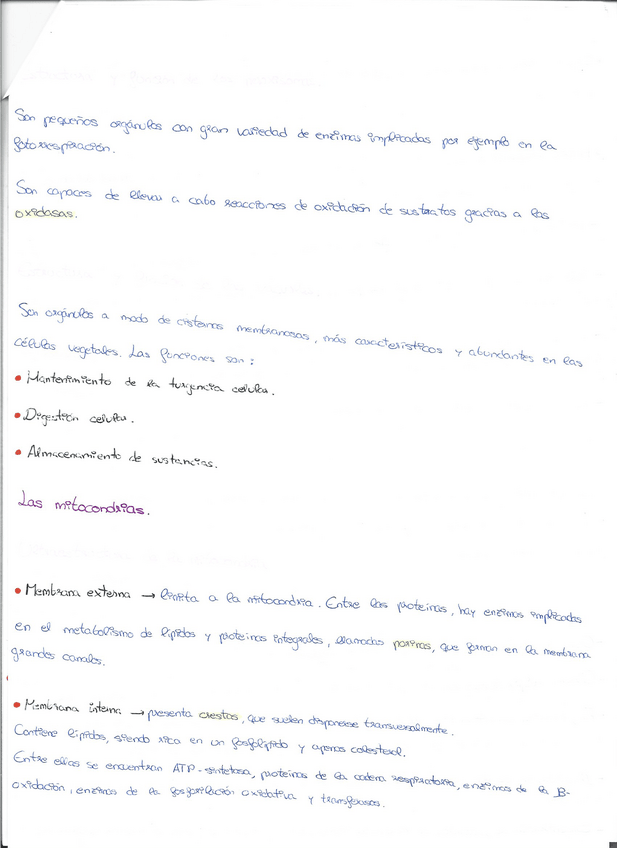 Son pequeños orgánulos con gran variedad de enzimas implicadas por ejemplo en la
fotorrespiración.
Son capaces de llevar a cabo reacciones de oxidación de sustratos gracias a las
oxidasas.
Son orgánulos a modo de cisternas membranosas, más característicos y abundantes en las
células vegetales. Las funciones son:
• Mantenimiento de la turgencia celular.
• Digestión celular.
• Almacenamiento de sustancias.
Las mitocondrias.
• Membrana externa → limita a la mitocondria. Entre las proteinas, hay enzimas implicadas
en el metabolismo de lípidos y proteinas integrales, llamadas porinas, que forman en la membrana
grandes canales.
• Membrana interna → presenta crestas, que suelen disponerse transversalmente.
Contiene lípidos, siendo rica en un fosfolípido y apenas colesterol.
Entre ellas se encuentran ATP-sintetasa, proteinas de la cadena respiratoria, enzimas de la B-
oxidación, enzimas de la fosforilación oxidativa y transferasas.